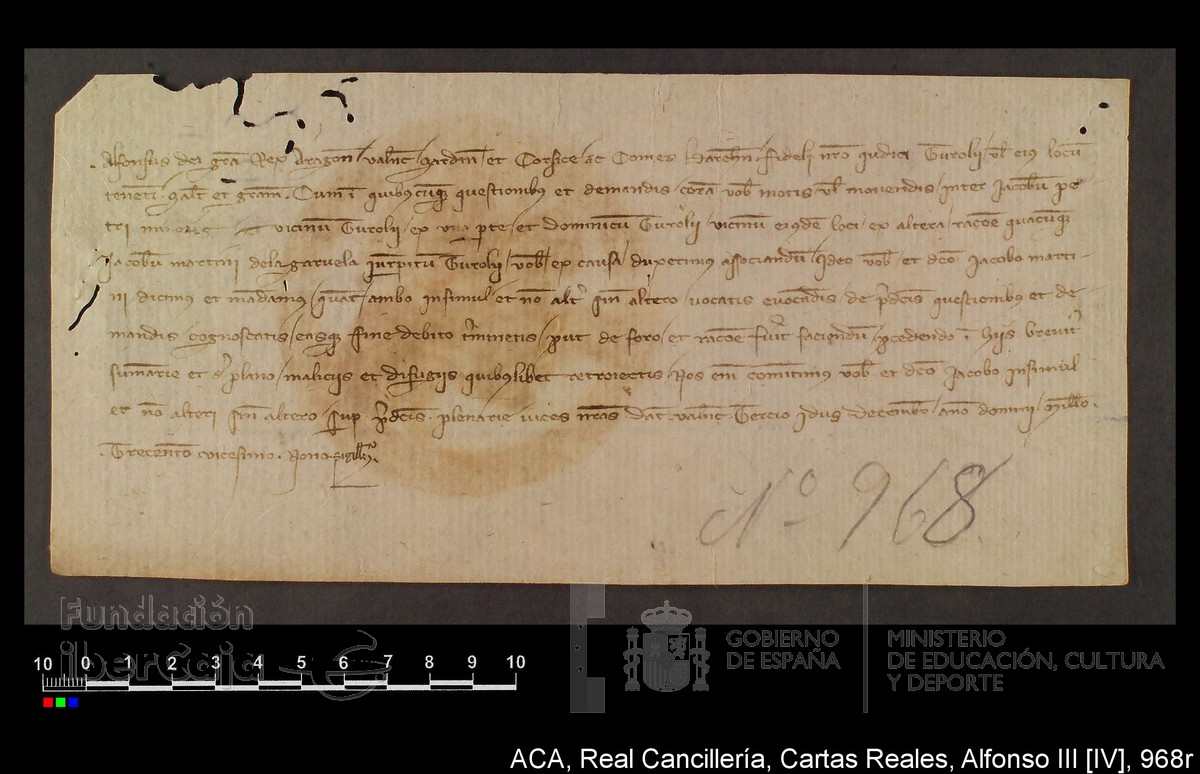 Alfonsus dei gra Rex Aragon / Valenc / Sardin / et Corsice / ac Comes Barchn / fideli nro Judici Turolii / vl eius locu
tenenti / salt et gram. Cum i quibuscuq questionibus et demandis / cora vob motis vl movendis / inter Jacobum pe
tri minoris vicinum Turolii / ex una pte / et dominicum Turolii / vicinum eiusde loci / ex altera / racoe quacuq
Jacobum martini delagaruela iurisperitum Turolii / vob / ex causa / duxerimus associandum / Ideo vob / et dco Jacobo marti
ni dicimus et madamus / quat / ambo insimul / et no alter sin altero / vocatis evocadis / de pdcis questionibus et de
mandis / cognoscatis / easq fine debito terminetis / put de foro / et racoe fuerit faciendum / pcedendo i hiis breviter
sumarie et de plano / maliciis et difugiis quibuslibet retroiectis / Nos eni comitimus vob et dco Jacobo insimul
et no alteri sin altero sup pdcis / plenarie vices nras Dat Valenc Tercio Idus Decembr / ano domini / Millo
Trecento vicesimo Nono
Nº 968
Fundación
iberCaja
GOBIERNO
DE ESPAÑA
MINISTERIO
DE EDUCACIÓN, CULTURA
Y DEPORTE
10 0 1 2 3 4 5 6 7 8 9 10
ACA, Real Cancillería, Cartas Reales, Alfonso III [IV], 968r